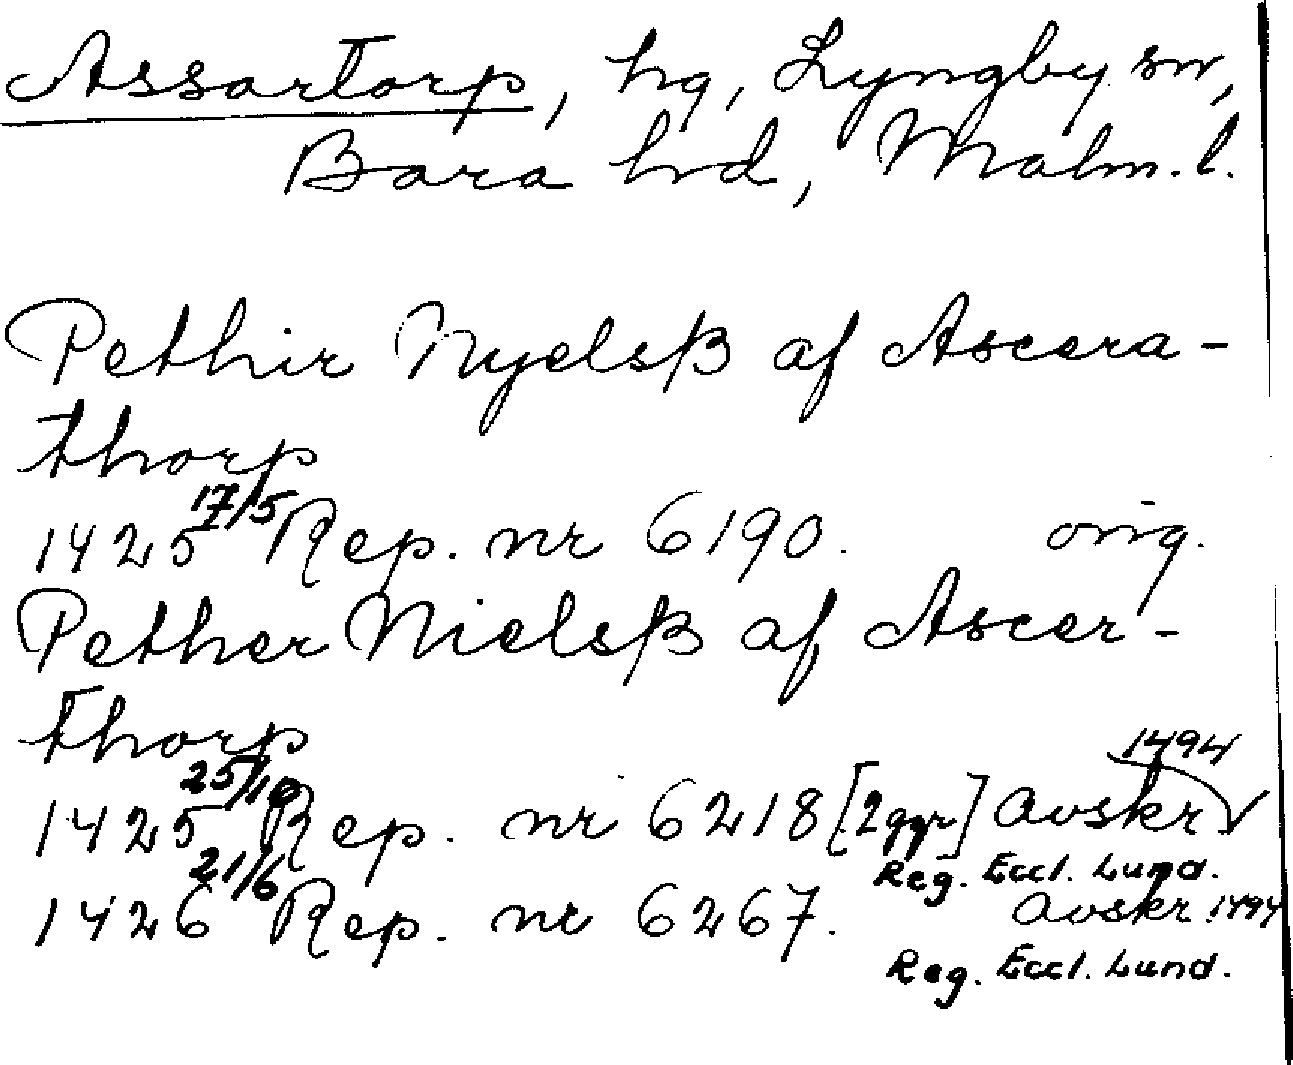 Assartorp, hg, Lyngby sn,
Bara hd, Malm. l.
Pethir Nyelsß af Ascera-
thorp
1425 17/5 Rep. nr 6190. orig.
Pether Nielsß af Ascer-
thorp
1425 25/10 Rep. nr 6218 [2 ggr] avskr 1494
Reg. Eccl. Lund.
1426 21/6 Rep. nr 6267. avskr. 1494
Reg. Eccl. Lund.